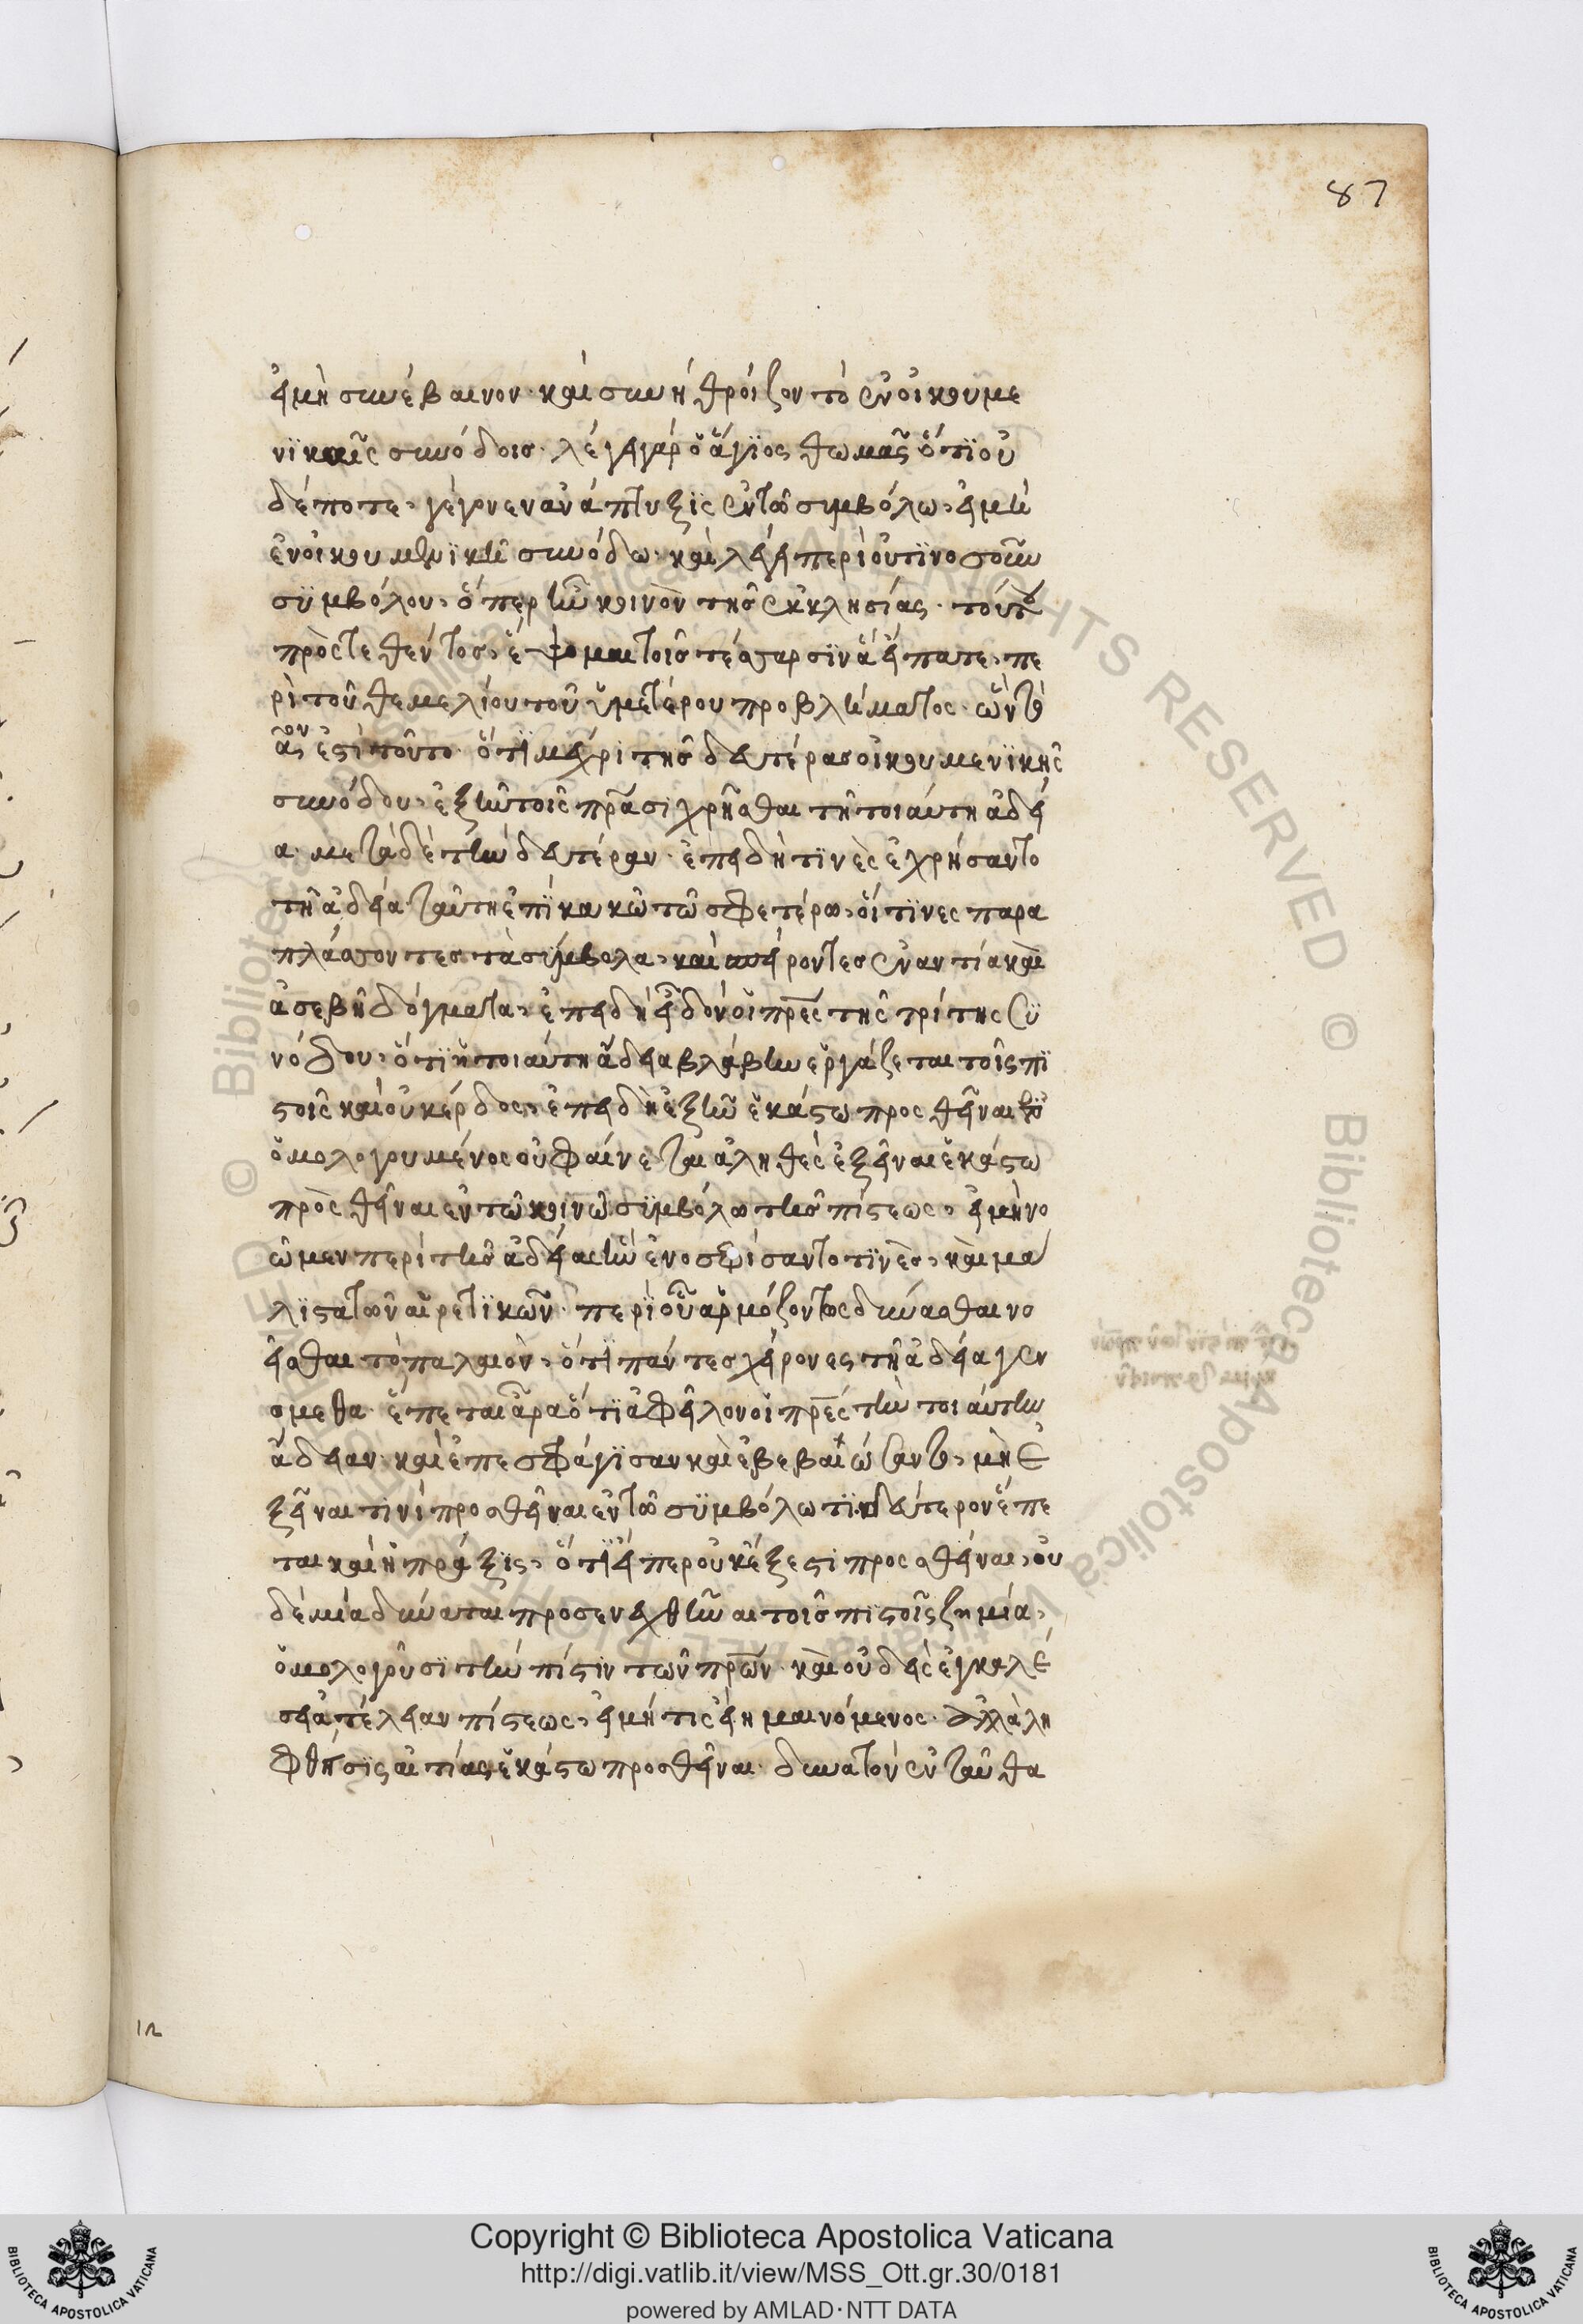 87
εἰ μὴ συνέβαινον· καὶ συνήθροίζοντο ἐν οἰκουμε
νικαῖς συνόδοις· λέγει γὰρ ὁ ἅγιος θωμᾶς ὅτι οὐ
δέποτε γέγονεν ἀνάπτυξις ἐν τῶ συμβόλω, εἰ μὴ
ἐν οἰκουμενικῆ συνόδω· καὶ λέγει περὶ οὑτινοσοῦν
συμβόλου, ὅπερ ἦν κοινὸν τῆς ἐκκλησίας· τούτου
πρὸςτεθέντος, ἕψομαι τοῖς τέσσαρσιν ἃ εἴπατε, πε
ρὶ τοῦ θεμελίου τοῦ ὑμετέρου προβλήματος· ὧν τὸ
ἐστὶ τοῦτο· ὅτι μέχρι τῆς δευτέρας οἰκουμενικῆς
συνόδου, ἐξῆν τοῖς πρᾶσι χρῆσθαι τῆ τοιαύτη ἀδεί
α· μετὰ δὲ τὴν δευτέραν· ἐπειδή τινὲς ἐχρήσαντο
τῆ ἀδεία ταύτη ἐπὶ κακῶ τῶ σφετέρω, οἵτινες παρα
πλάσσοντες τὰ σύμβολα, καὶ σπείροντες ἐναντία καὶ
ἀσεβῆ δόγματα, ἐπειδὴ εἶδον οἱ πρες τῆς τρίτης συ
νόδου, ὅτι ἡ τοιαύτη ἄδεια βλάβην ἐργάζεται τοῖς πι
στοῖς καὶ οὐ κέρδος, ἐπειδὴ ἐξῆν ἑκάστω προσθεῖναι
ὁμολογουμένος οὐ φαίνεται ἀληθὲς ἐξεῖναι ἑκάστω
πρὸςθεῖναι ἐν τῶ κοινῶ συμβόλω τῆς πίστεως, εἰ μὴ νο
ῶμεν περὶ τῆς ἀδείας ἣν ἐνοσφίσαντο τινὲς, καὶ μά
λιστα τῶν αἱρετικῶν· περὶ οὗ ἁρμόζοντος δύνασθαι νο
εῖσθαι τὸ παλαιὸν, ὅτι πάντες χείρονες τῆ ἀδεία γεν
σμεθα· ἕπεται ἄρα ὅτι ἀφεῖλον οἱ πρες τὴν τοιαύτην
ἄδειαν· καὶ ἐπεσφάγισαν καὶ ἐβεβαίωσαντο, μὴ ἐ
ξεῖναι τινὶ προσθεῖναι ἐν τῶ συμβόλω τί· δεύτερον ἕπε
ται καὶ ἡ πρᾶξις, ὅτι εἴπερ οὐκ ἔξεστι προσθεῖναι, οὐ
δεμία δύναται προσενεχθῆναι τοῖς πιστοῖς ζημία,
ὁμολογοῦσι τὴν πίστιν τῶν πρων· καὶ οὐδεὶς ἐγκαλέ
σει ἀτέλειαν πίστεως, εἰ μή τις εἴη μαινόμενος· ἀλλὰ λη
φθήσις αἰτίας ἑκάστω προσθεῖναι· δυνατὸν ἐνταῦθα
12
Copyright © Biblioteca Apostolica Vaticana
http://digi.vatlib.it/view/MSS_Ott.gr.30/0181
powered by AMLAD·NTT DATA
BIBLIOTECA APOSTOLICA VATICANA
BIBLIOTECA APOSTOLICA VATICANA